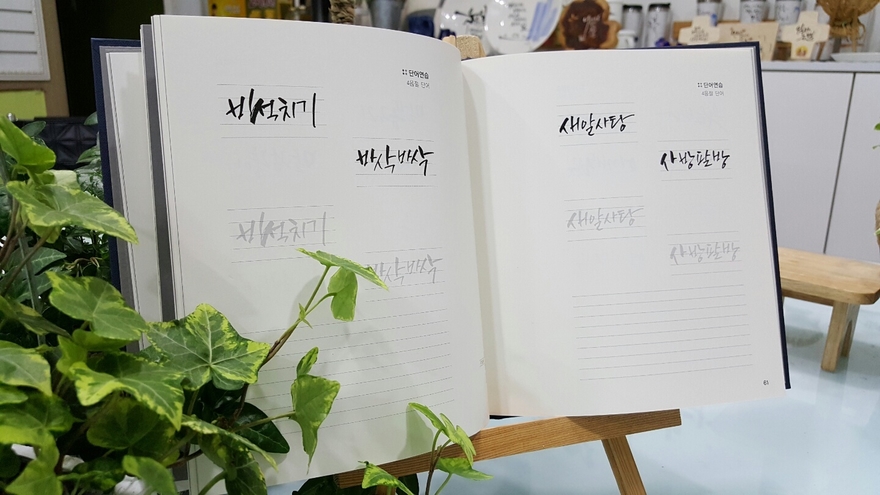 단어연습
4음절 단어
비석치기
바삭바삭
비석치기
바삭바삭
단어연습
4음절 단어
새알사탕
사방팔방
새알사탕
사방팔방
61